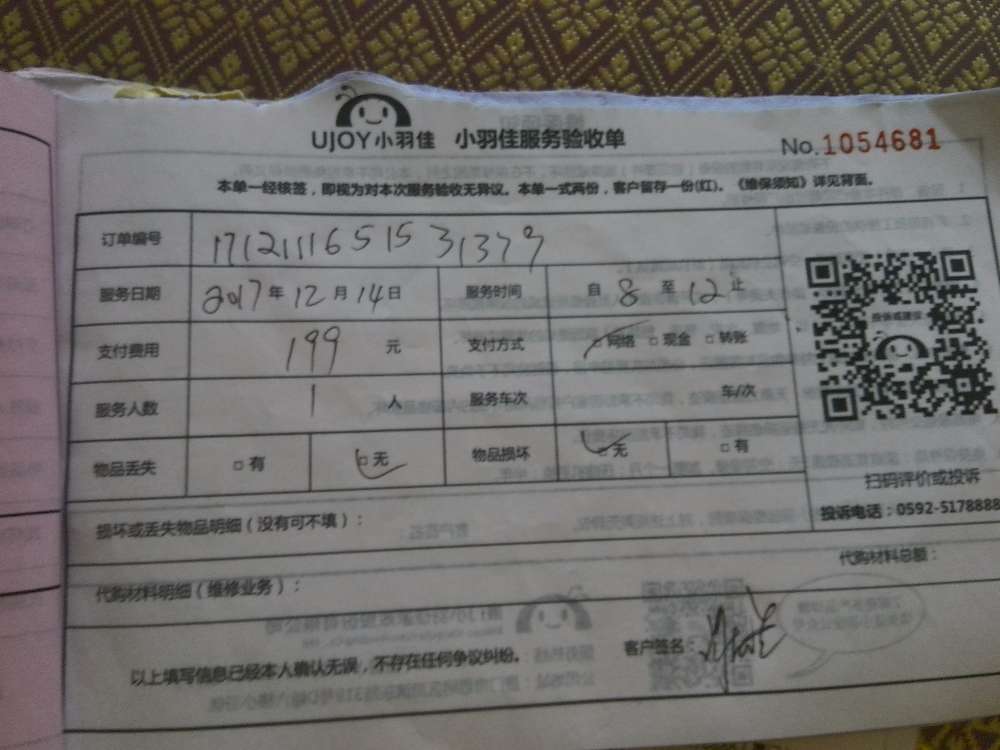 UJOY小羽佳 小羽佳服务验收单 No.1054681
本单一经核签，即视为对本次服务验收无异议。本单一式两份，客户留存一份(红)。《维保须知》详见背面。
订单编号 1712111651531379
服务日期 2017年12月14日 服务时间 自8至12止
支付费用 199 元 支付方式 □网络 □现金 □转账
服务人数 1 人 服务车次 车/次
物品丢失 □有 □无 物品损坏 □无 □有
投诉或建议
扫码评价或投诉
投诉电话：0592-5178888
损坏或丢失物品明细（没有可不填）：
代购材料明细（维修业务）： 代购材料总额：
以上填写信息已经本人确认无误，不存在任何争议纠纷。 客户签名：